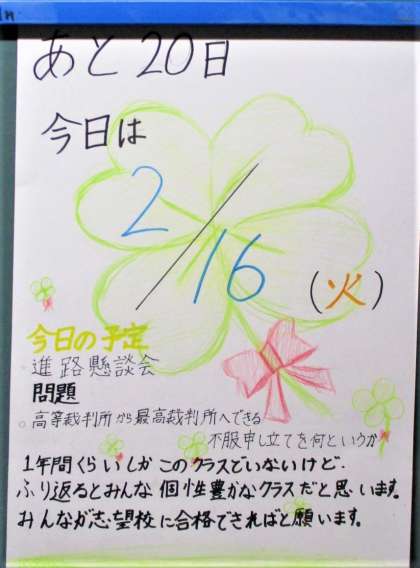 あと20日
今日は
2/16
(火)
今日の予定
進路懇談会
問題
。高等裁判所から最高裁判所へできる
不服申し立てを何というか
1年間くらいしかこのクラスでいないけど、
ふり返るとみんな個性豊かなクラスだと思います。
みんなが志望校に合格できればと願います。